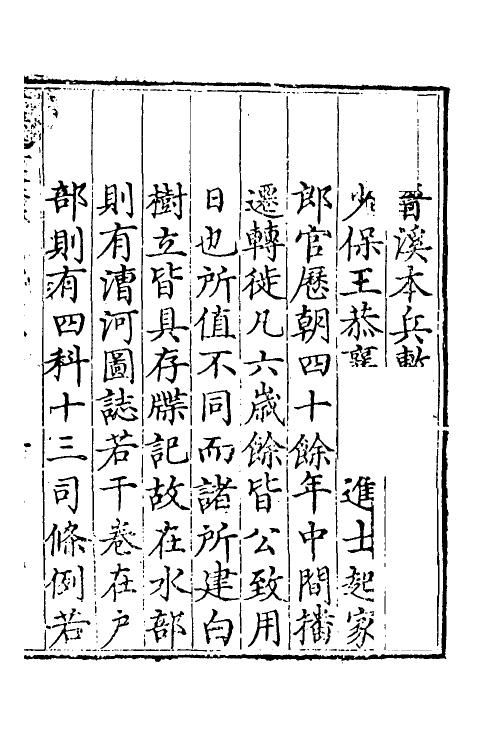 晉溪本兵
少保王恭襄　進士起家
郎官歷朝四十餘年中間播
遷轉徙凡六歲餘皆公致用
日也所值不同而諸所建白
樹立皆具存牒記故在水部
則有漕河圖誌若干卷在戶
部則有四科十三司條例若